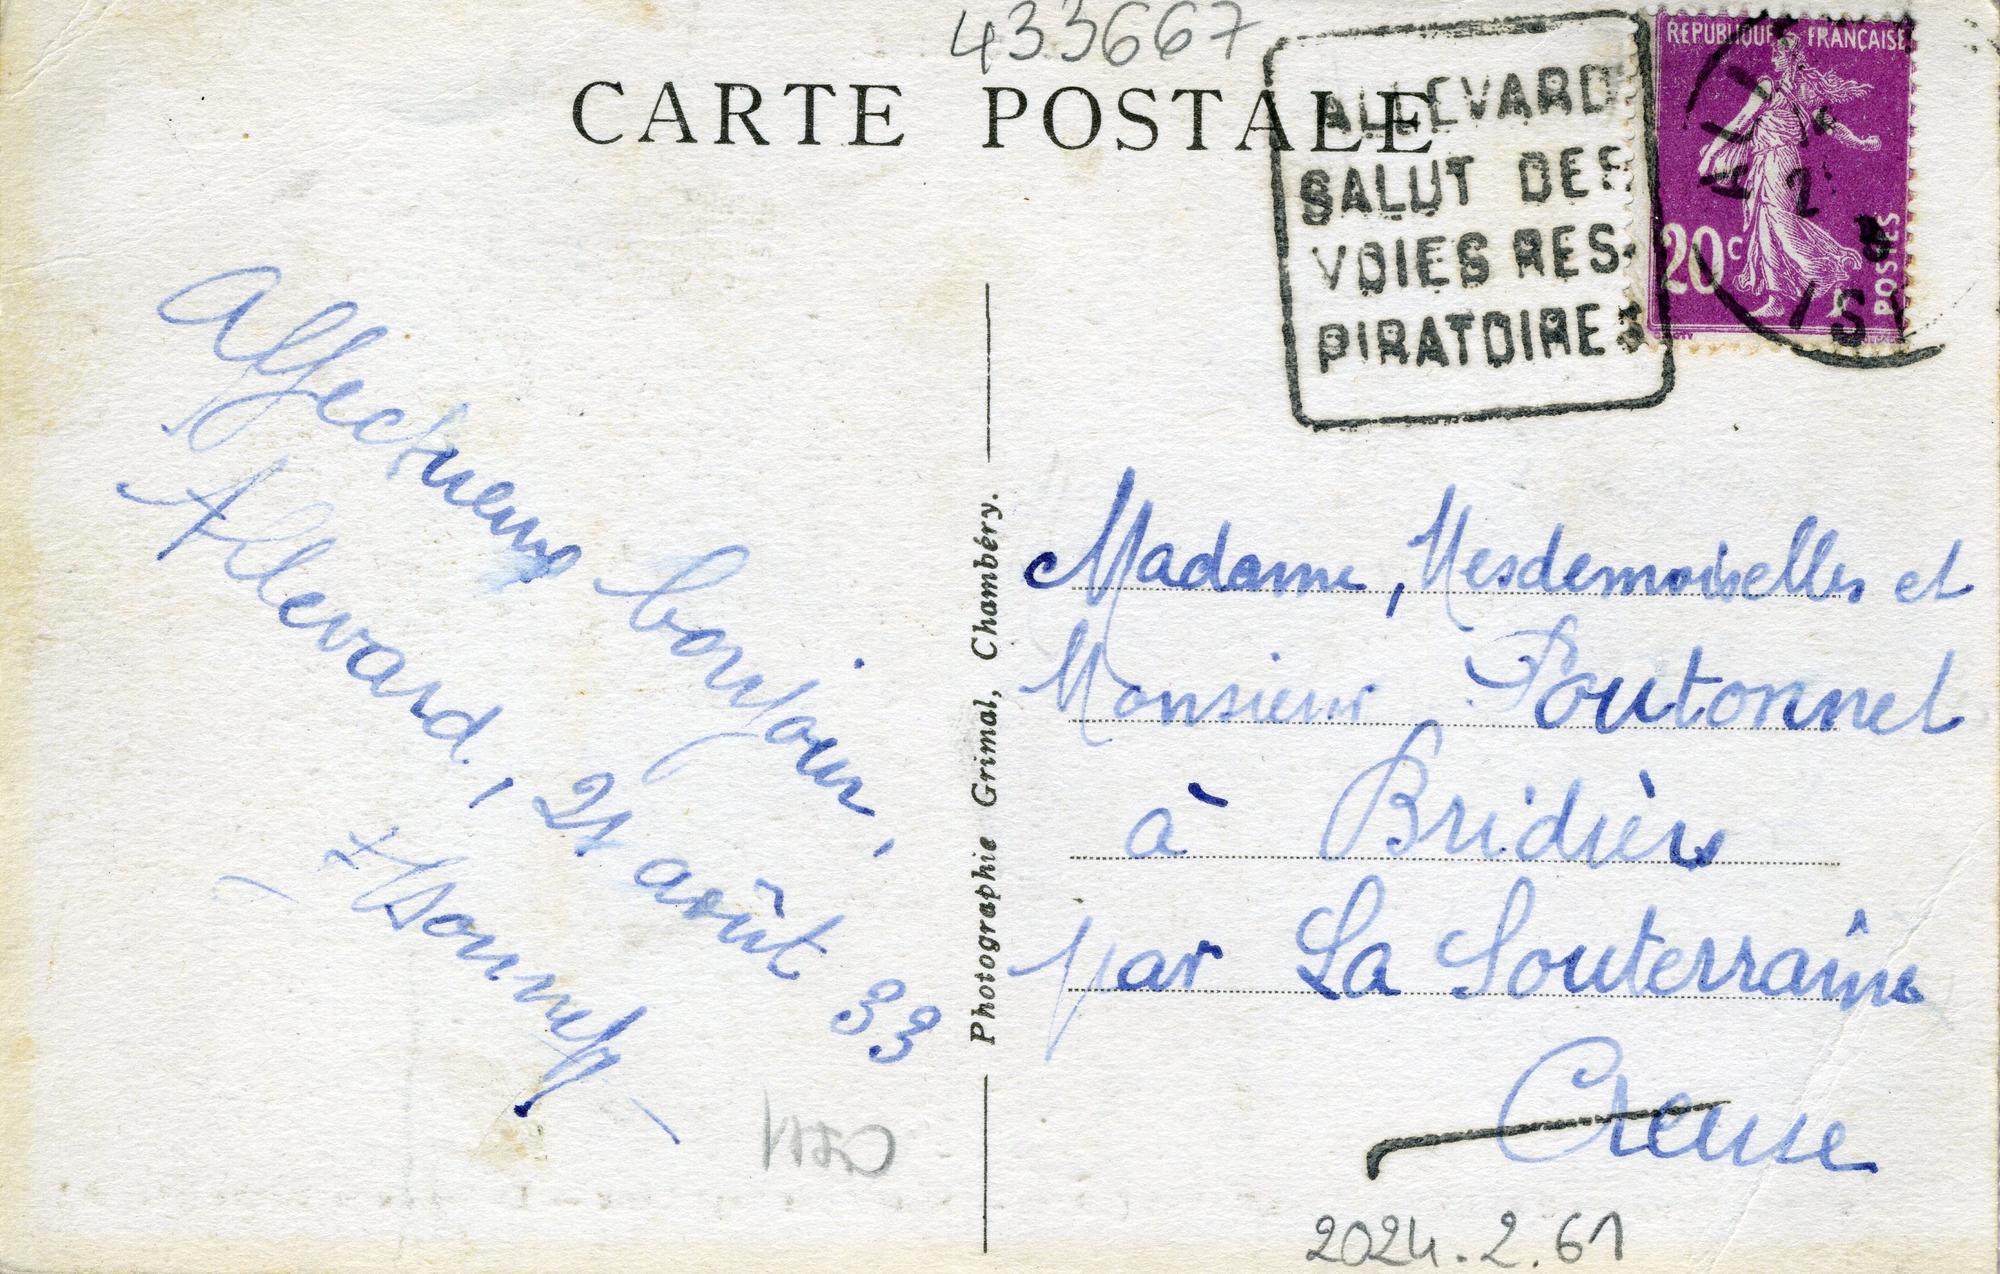 433667
CARTE POSTALE
ALLEVARD
SALUT DES
VOIES RES-
PIRATOIRES
REPUBLIQUE FRANÇAISE
20c
POSTES
Affectueux bonjour,
Allevard, 21 août 33
Photographie Grimal, Chambéry.
Madame, Mesdemoiselles et
Monsieur Poutonnet
à Bridiers
par La Souterraine
Creuse
2024.2.61